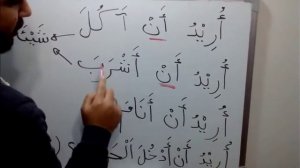 أُرِيْدُ أَنْ آكُلَ
أُرِيْدُ أَنْ أَشْرَبَ
أُرِيْدُ أَنْ أَنَامَ
أُرِيْدُ أَنْ أَدْخُلَ